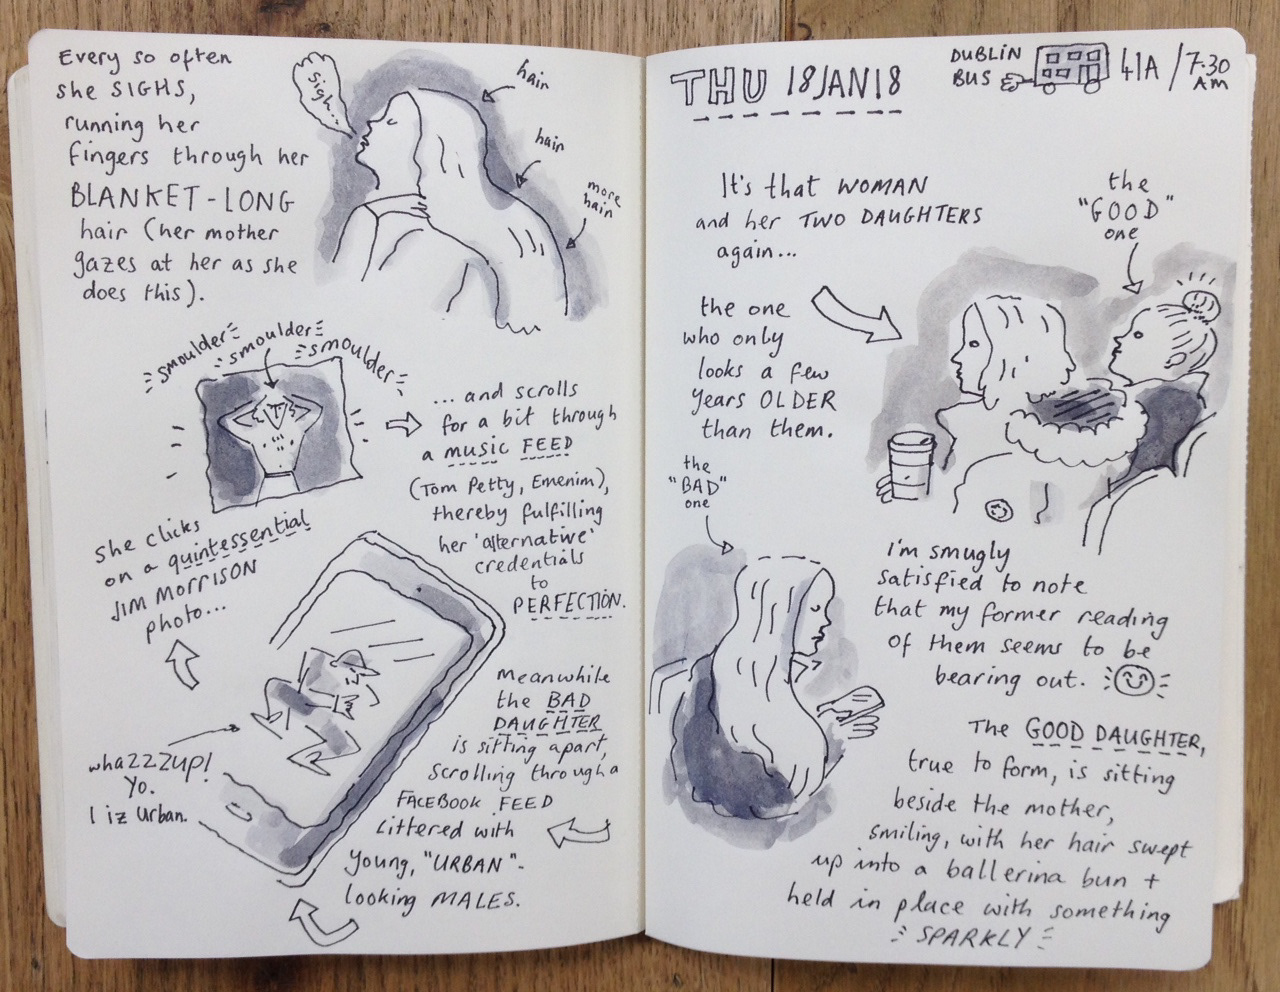 Every so often
she SIGHS,
running her
fingers through her
BLANKET-LONG
hair (her mother
gazes at her as she
does this).
sigh...
hair
hair
more
hair
smoulder
smoulder
smoulder
she clicks
on a quintessential
JIM MORRISON
photo...
... and scrolls
for a bit through
a music FEED
(Tom Petty, Emenim),
thereby fulfilling
her 'alternative'
credentials
to
PERFECTION.
whazzzup!
Yo.
I iz Urban.
Meanwhile
the BAD
DAUGHTER
is sitting apart,
scrolling through a
FACEBOOK FEED
littered with
young, "URBAN"-
looking MALES.
THU 18JAN18
DUBLIN
BUS
41A / 7.30
AM
It's that WOMAN
and her TWO DAUGHTERS
again...
the
"GOOD"
one
the one
who only
looks a few
years OLDER
than them.
the
"BAD"
one
I'm smugly
satisfied to note
that my former reading
of them seems to be
bearing out.
The GOOD DAUGHTER,
true to form, is sitting
beside the mother,
smiling, with her hair swept
up into a ballerina bun +
held in place with something
SPARKLY